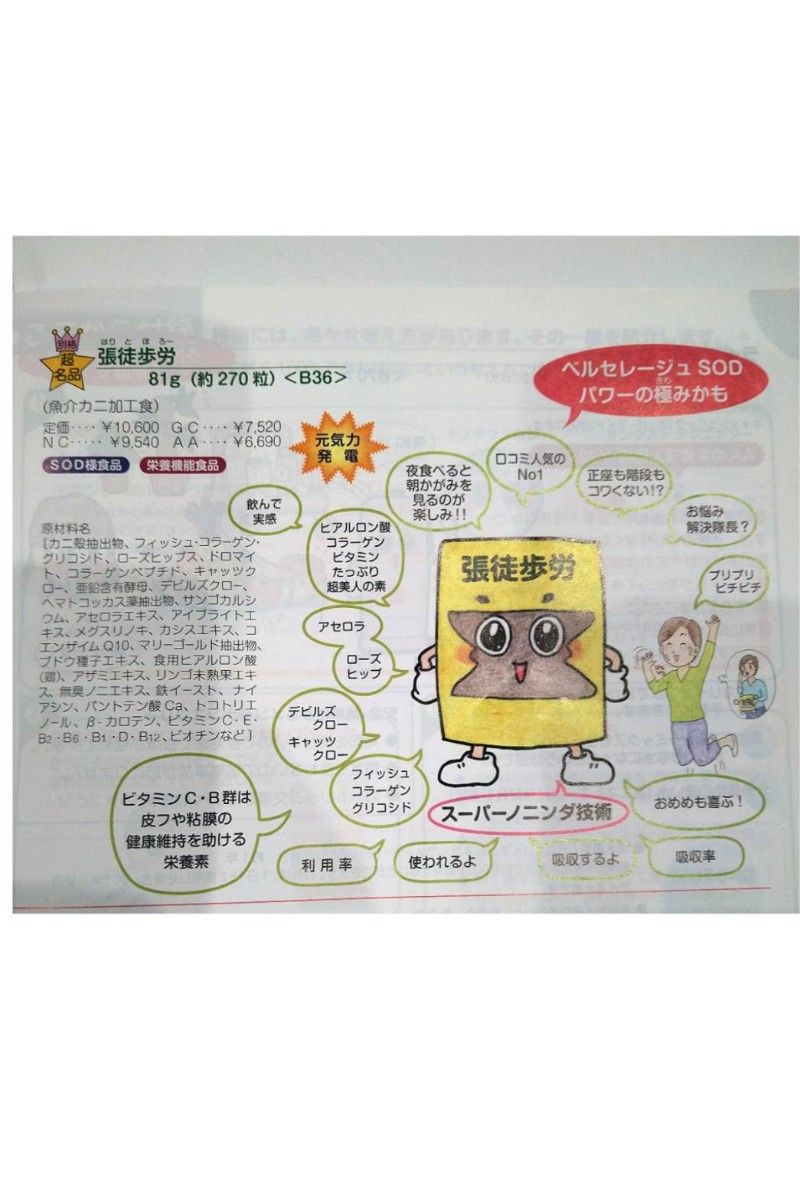 別格
超
名品
はりとほろー
張徒歩労
81g（約270粒）＜B36＞
(魚介カニ加工食)
定価‥‥ ¥10,600 GC‥‥ ¥7,520
NC‥‥‥ ¥9,540 AA‥‥ ¥6,690
SOD様食品 栄養機能食品
元気力
発電
ベルセレージュSOD
パワーの極みかも
きわ
飲んで
実感
夜食べると
朝かがみを
見るのが
楽しみ!!
口コミ人気の
No1
正座も階段も
コワくない!?
お悩み
解決隊長？
プリプリ
ピチピチ
ヒアルロン酸
コラーゲン
ビタミン
たっぷり
超美人の素
アセロラ
ローズ
ヒップ
デビルズ
クロー
キャッツ
クロー
フィッシュ
コラーゲン
グリコシド
張徒歩労
原材料名
〔カニ殻抽出物、フィッシュ・コラーゲン・
グリコシド、ローズヒップス、ドロマイ
ト、コラーゲンペプチド、キャッツク
ロー、亜鉛含有酵母、デビルズクロー、
ヘマトコッカス藻抽出物、サンゴカルシ
ウム、アセロラエキス、アイブライトエ
キス、メグスリノキ、カシスエキス、コ
エンザイムQ10、マリーゴールド抽出物、
ブドウ種子エキス、食用ヒアルロン酸
(鶏)、アザミエキス、リンゴ未熟果エキ
ス、無臭ノニエキス、鉄イースト、ナイ
アシン、パントテン酸Ca、トコトリエ
ノール、β-カロテン、ビタミンC・E・
B2・B6・B1・D・B12、ビオチンなど〕
ビタミンC・B群は
皮フや粘膜の
健康維持を助ける
栄養素
スーパーノニンダ技術
おめめも喜ぶ！
利用率
使われるよ
吸収するよ
吸収率